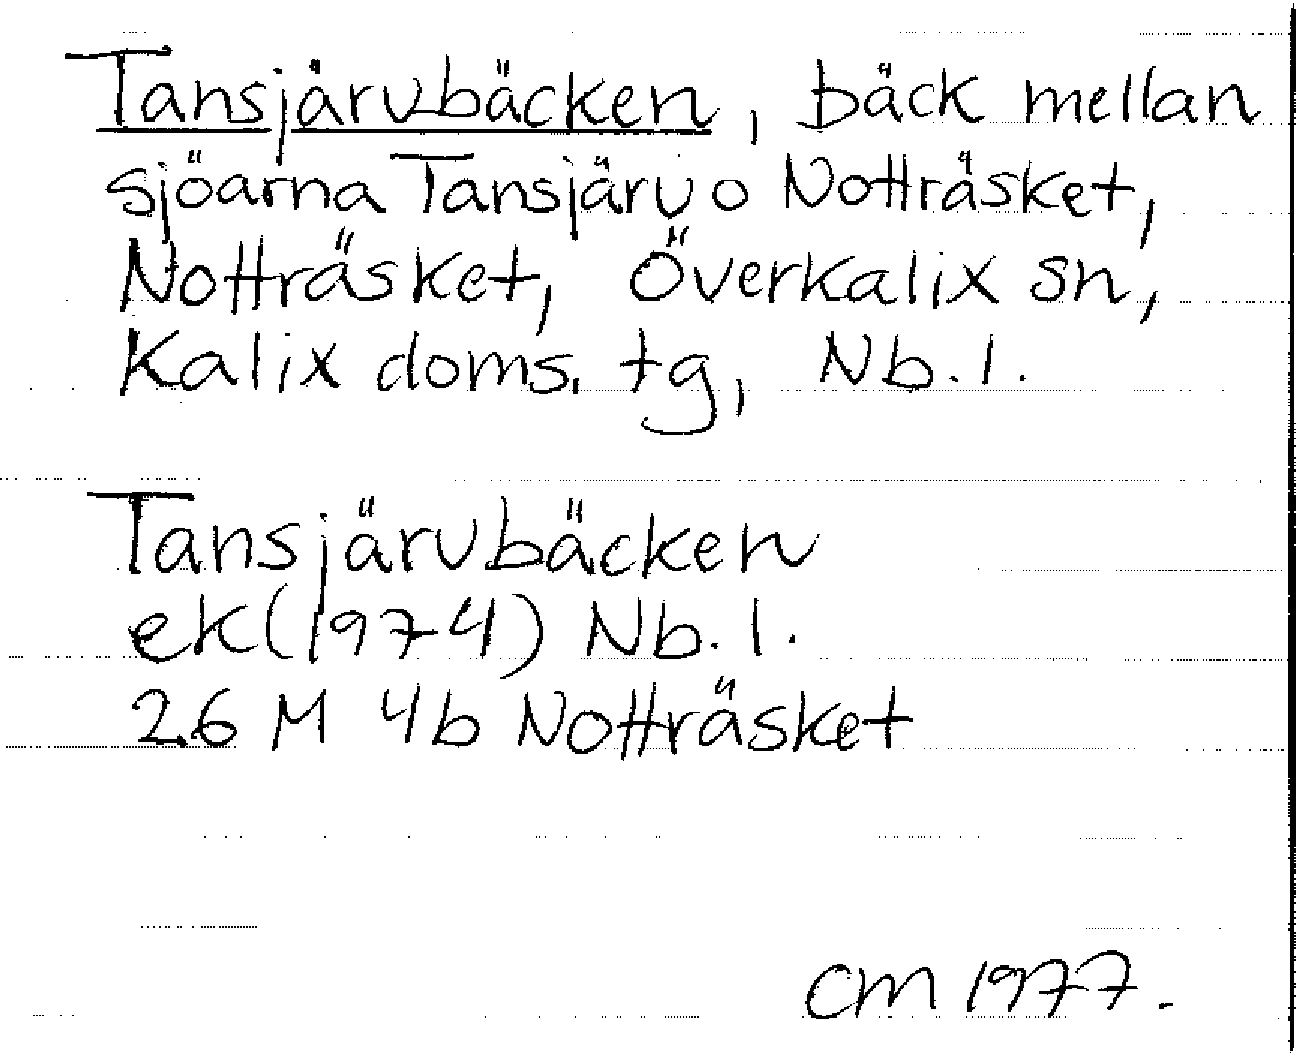 Tansjärvbäcken, bäck mellan
sjöarna Tansjärv o Notträsket,
Notträsket, Överkalix sn,
Kalix doms. tg, Nb. l.
Tansjärvbäcken
ek (1974) Nb. l.
26 M 4b Notträsket
CM 1977.